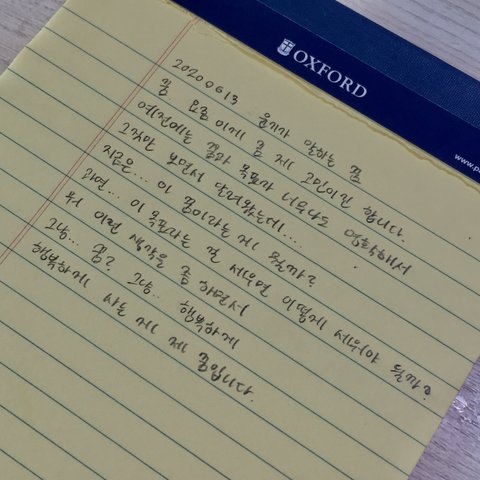 OXFORD
www.p
20200613 윤기가 말하는 꿈
꿈. 요즘 이게 좀 제 고민이긴 합니다.
예전에는 꿈과 목표가 너무나도 명확해서
그것만 보면서 달려왔는데....
지금은... 이 꿈이라는 게 뭘까?
과연... 이 목표라는 걸 세우면 어떻게 세워야 될까?
뭐 이런 생각을 좀 하면서
그냥... 꿈? 그냥.. 행복하게
행복하게 사는 게 제 꿈입니다.